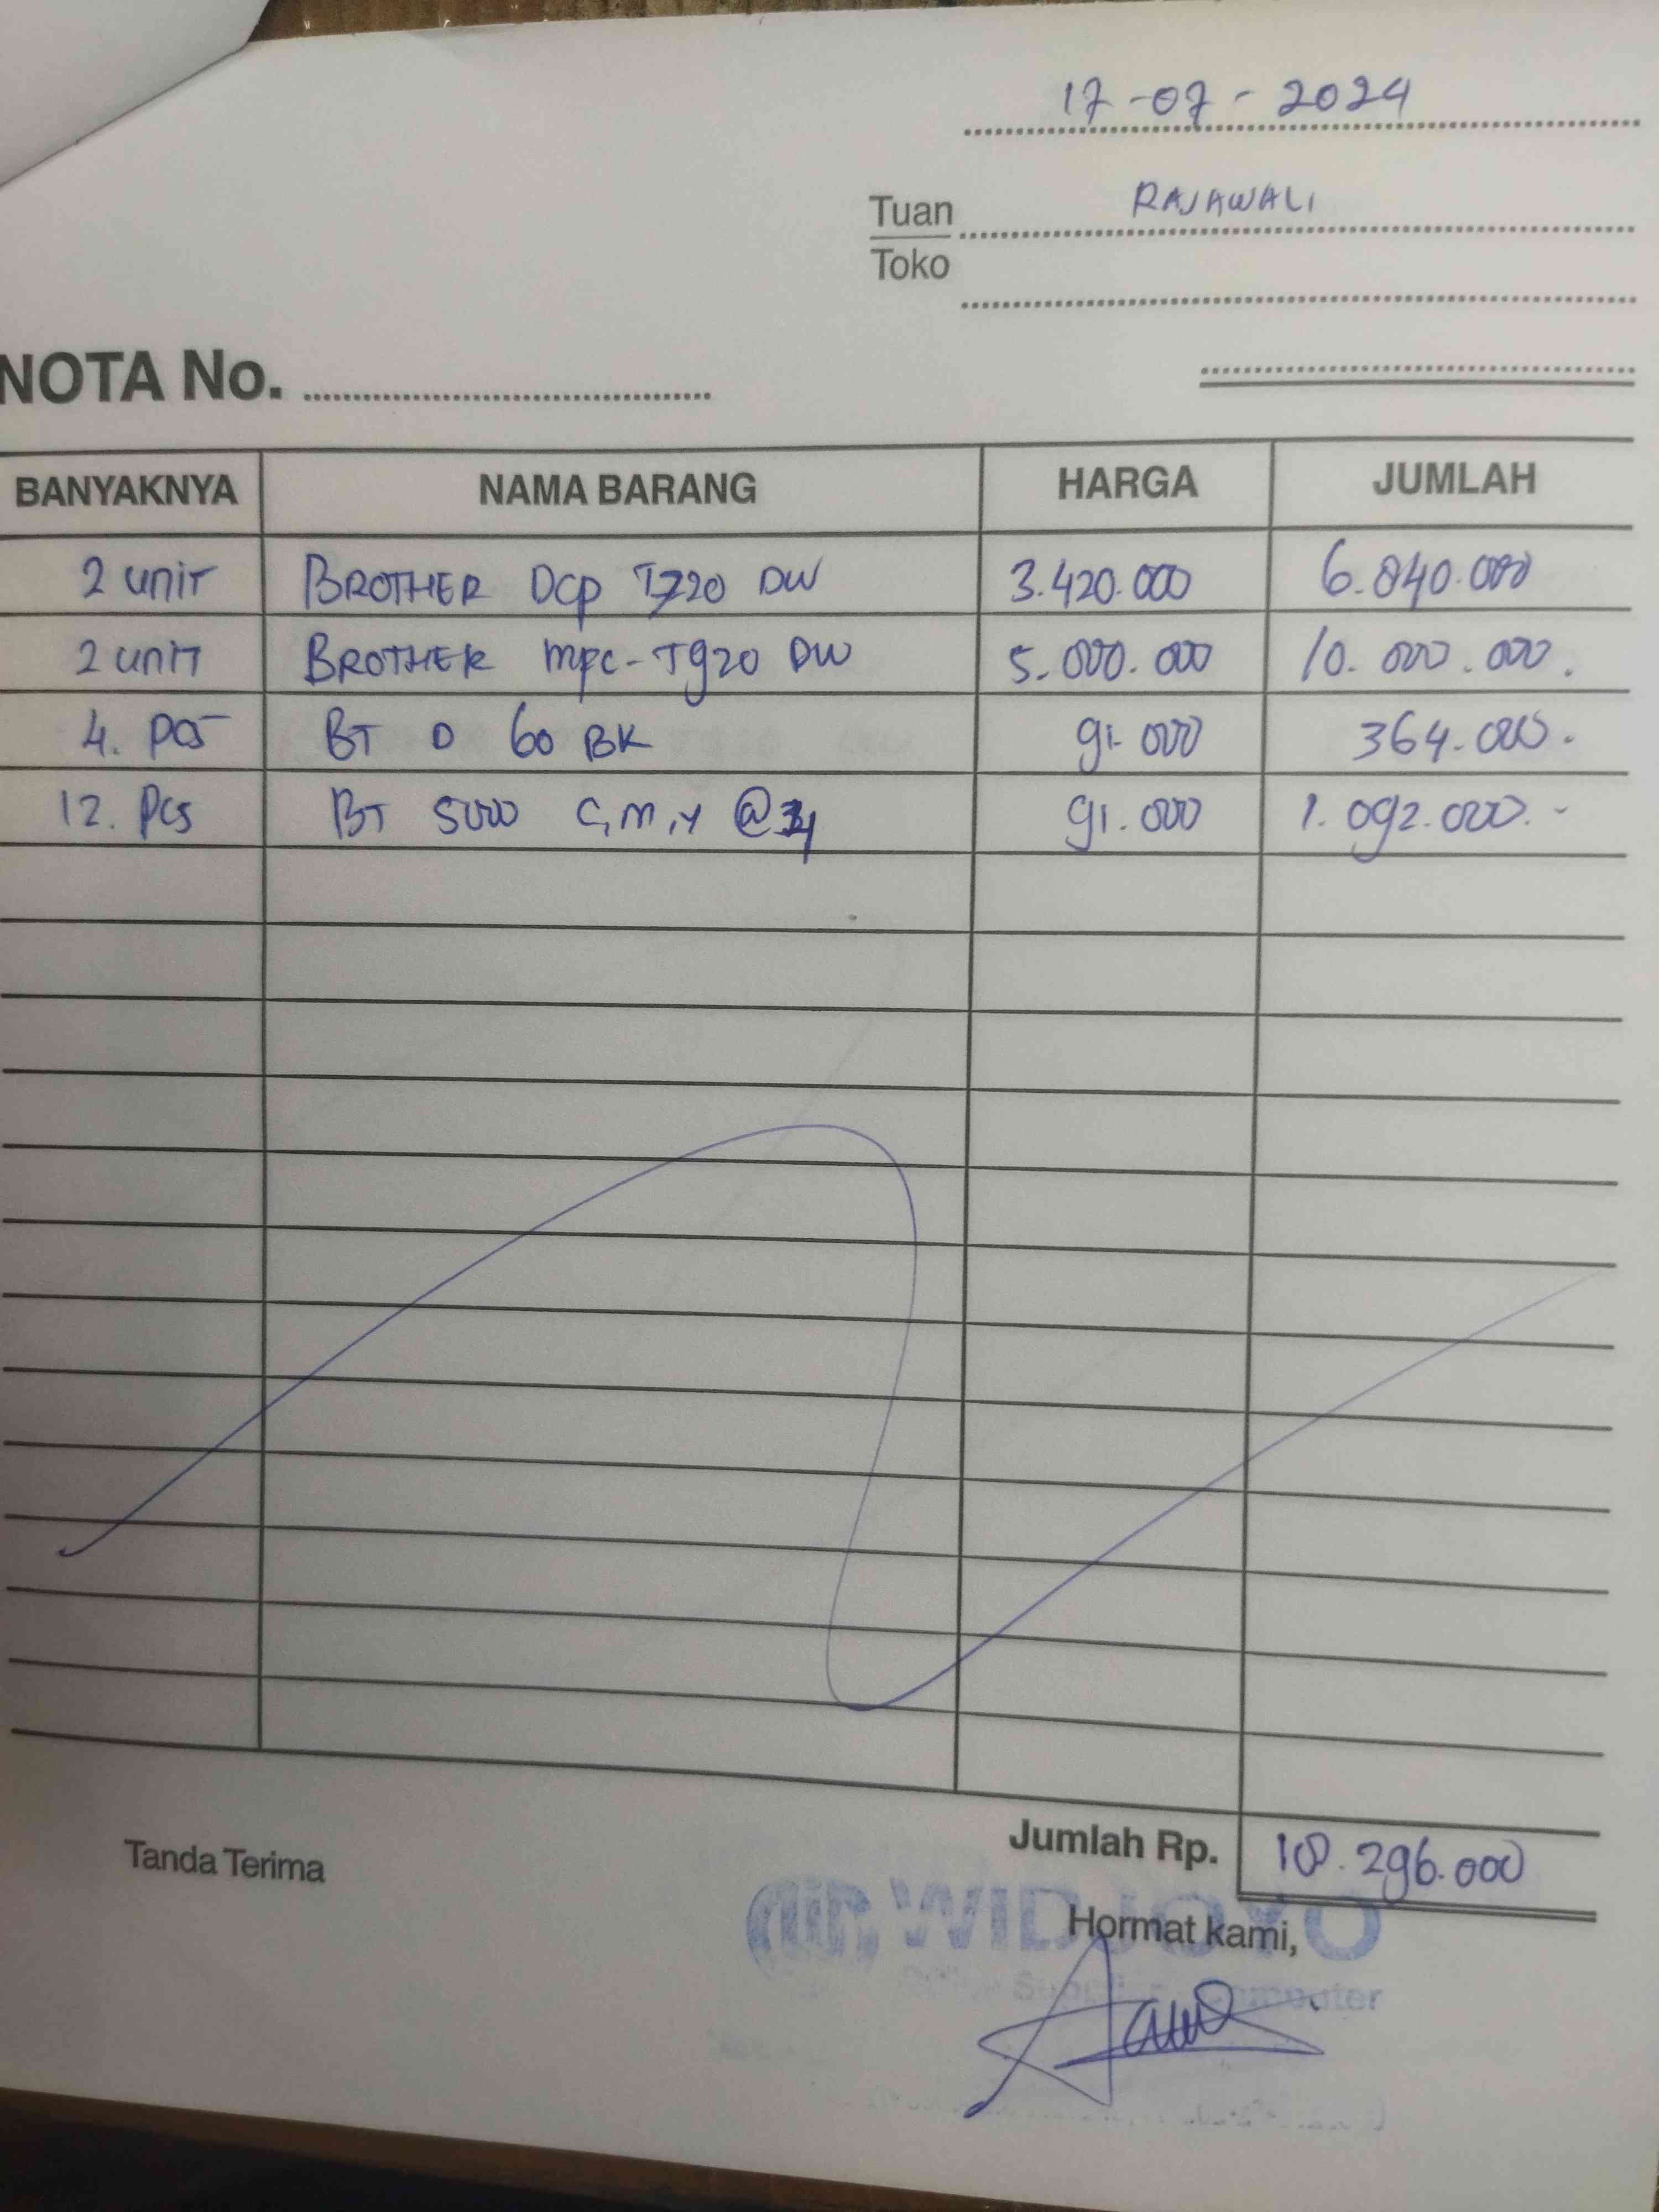 17-07-2024
Tuan RAJAWALI
Toko
NOTA No.
BANYAKNYA NAMA BARANG HARGA JUMLAH
2 unit BROTHER DCP T720 DW 3.420.000 6.840.000
2 unit BROTHER MFC-T920 DW 5.000.000 10.000.000.
4. pcs BT D 60 BK 91.000 364.000.
12. Pcs BT 5000 C,M,Y @4 91.000 1.092.000.-
Jumlah Rp. 18.296.000
Tanda Terima
Hormat kami,
WIDJOYO
Computer